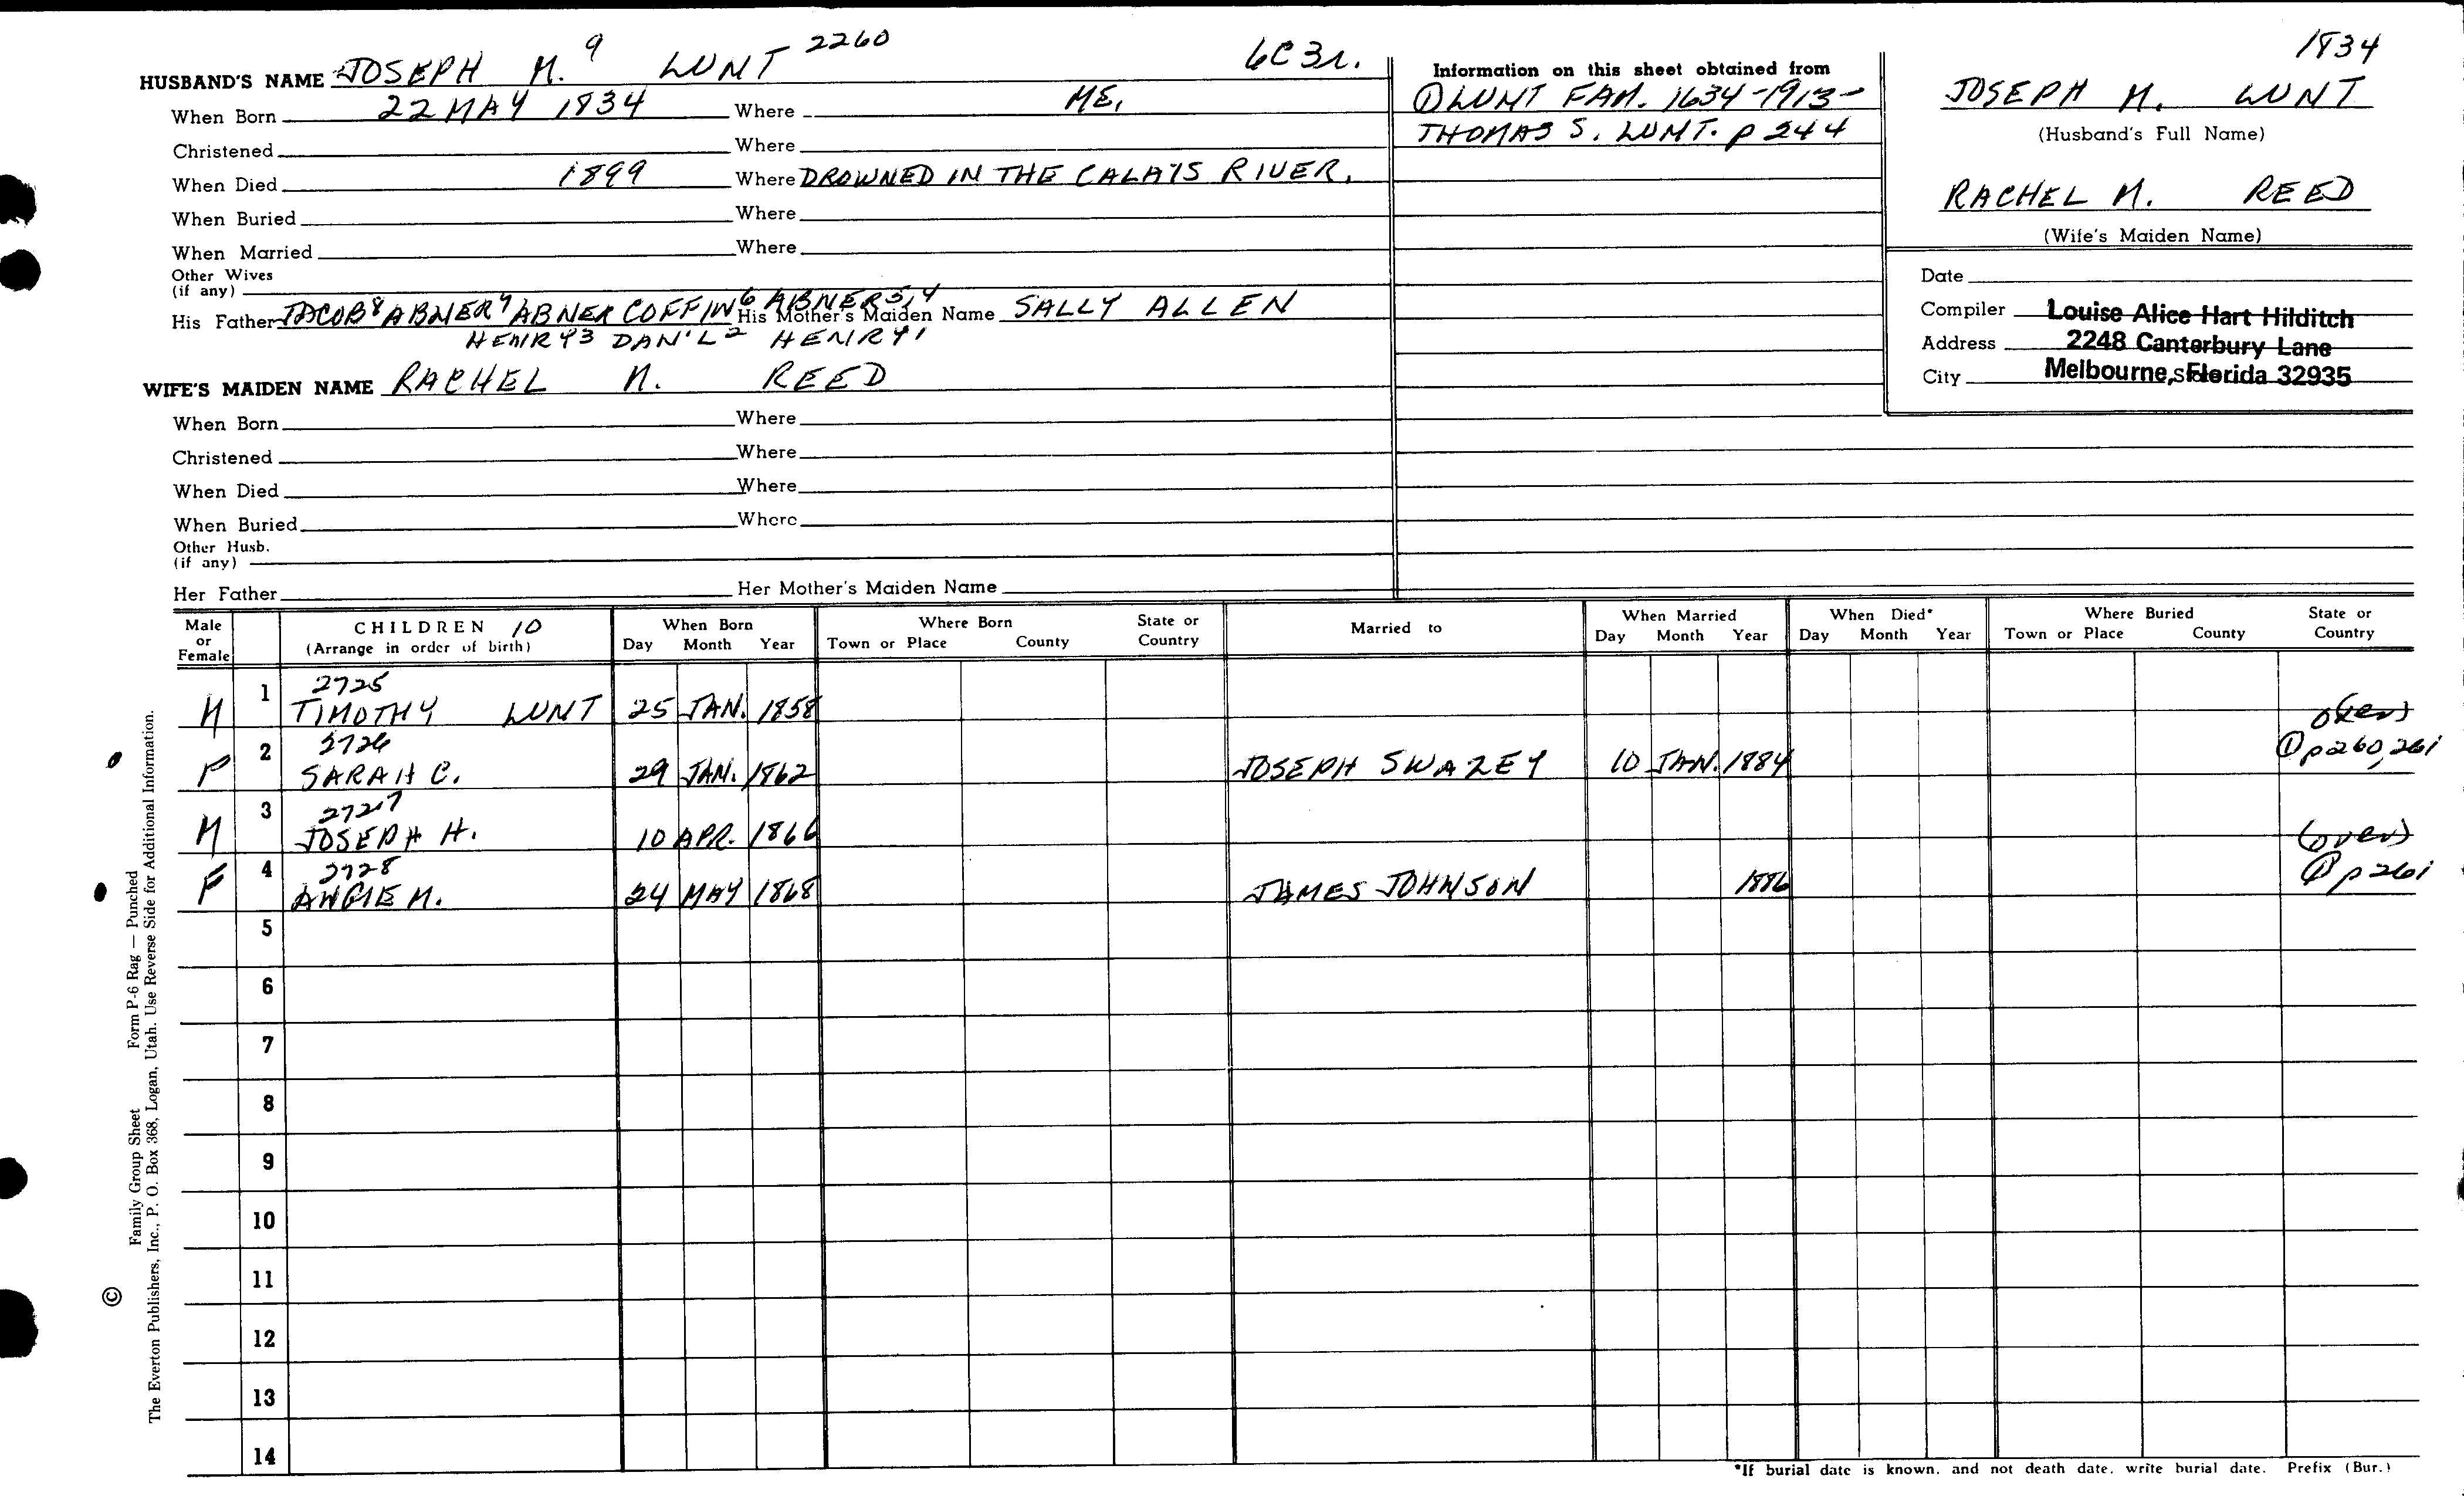 1834
HUSBAND'S NAME JOSEPH M. 9 LUNT 2260 6C3r.
When Born 22 MAY 1834 Where ME.
Christened Where
When Died 1899 Where DROWNED IN THE CALAIS RIVER.
When Buried Where
When Married Where
Other Wives
(if any)
His Father JACOB8 ABNER7 ABNER COFFIN6 ABNER5,4 His Mother's Maiden Name SALLY ALLEN
HENRY3 DAN'L2 HENRY1
WIFE'S MAIDEN NAME RACHEL M. REED
When Born Where
Christened Where
When Died Where
When Buried Where
Other Husb.
(if any)
Her Father Her Mother's Maiden Name
Information on this sheet obtained from
① LUNT FAM. 1634-1913-
THOMAS S. LUNT. p 244
JOSEPH M. LUNT
(Husband's Full Name)
RACHEL M. REED
(Wife's Maiden Name)
Date
Compiler Louise Alice Hart Hilditch
Address 2248 Canterbury Lane
City Melbourne, Florida 32935
Male or Female CHILDREN 10 (Arrange in order of birth) When Born Day Month Year Where Born Town or Place County State or Country Married to When Married Day Month Year When Died* Day Month Year Where Buried Town or Place County State or Country
2725
M 1 TIMOTHY LUNT 25 JAN. 1858 (over)
2726 ① p 260, 261
F 2 SARAH C. 29 JAN. 1862 JOSEPH SWAZEY 10 JAN. 1884
2727
M 3 JOSEPH H. 10 APR. 1866 (over)
2728 ① p 261
F 4 ANGIE M. 24 MAY 1868 JAMES JOHNSON 1886
5
6
7
8
9
10
11
12
13
14
*If burial date is known, and not death date, write burial date. Prefix (Bur.)
© Family Group Sheet Form P-6 Rag — Punched
The Everton Publishers, Inc., P. O. Box 368, Logan, Utah. Use Reverse Side for Additional Information.